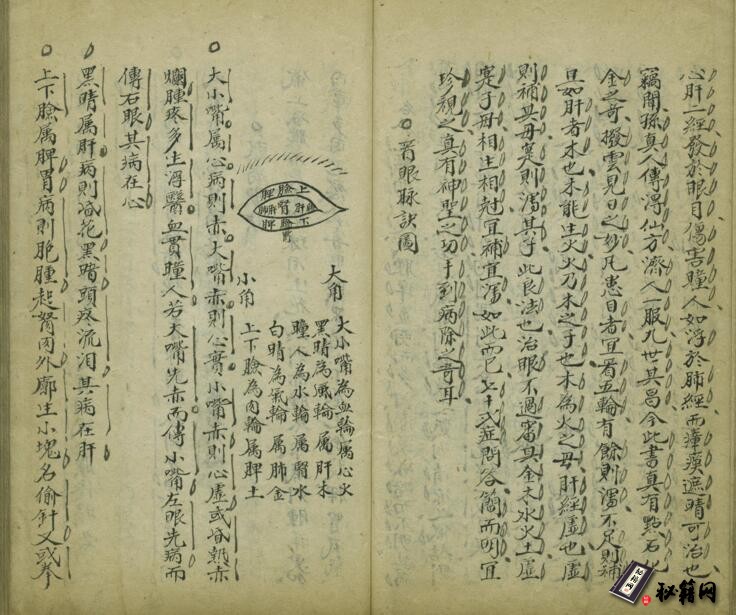 心肝二經發於眼目傷害瞳人如浮於肺經而瘴瘼遮睛可治也
竊聞孫真人傳得仙方濟人一服九世其昌今此書真有點石
金之奇撥雲見日之妙凡患目者宜看五輪有餘則瀉不足則補
且如肝者木也木能生火火乃木之子也木為火之母肝經虛也虛
則補其母寔則瀉其子此良法也治眼不過審其金木水火土虛
寔子母相生相尅宜補宜瀉如此而已七十弍症問答簡而明宜
珍視之真有神聖之功十到病除之奇耳
○看眼脉訣圖
大角
小角
上
臉
脾
肝
腎
下
臉
脾
大小嘴為血輪屬心火
黑睛為風輪屬肝木
瞳人為水輪屬腎水
白睛為氣輪屬肺金
上下臉為肉輪屬脾土
○大小嘴属心病則赤大嘴赤則心實小嘴赤則心虛或昏熱赤
爛腫疼多生浮翳血貫瞳人若大嘴先赤而傳小嘴左眼先病而
傳右眼其病在心
○黑睛属肝病則昏花黑暗頭疼流泪其病在肝
○上下臉属脾胃病則胞腫起胬肉外廓生小塊名偷針又或拳
秘籍网